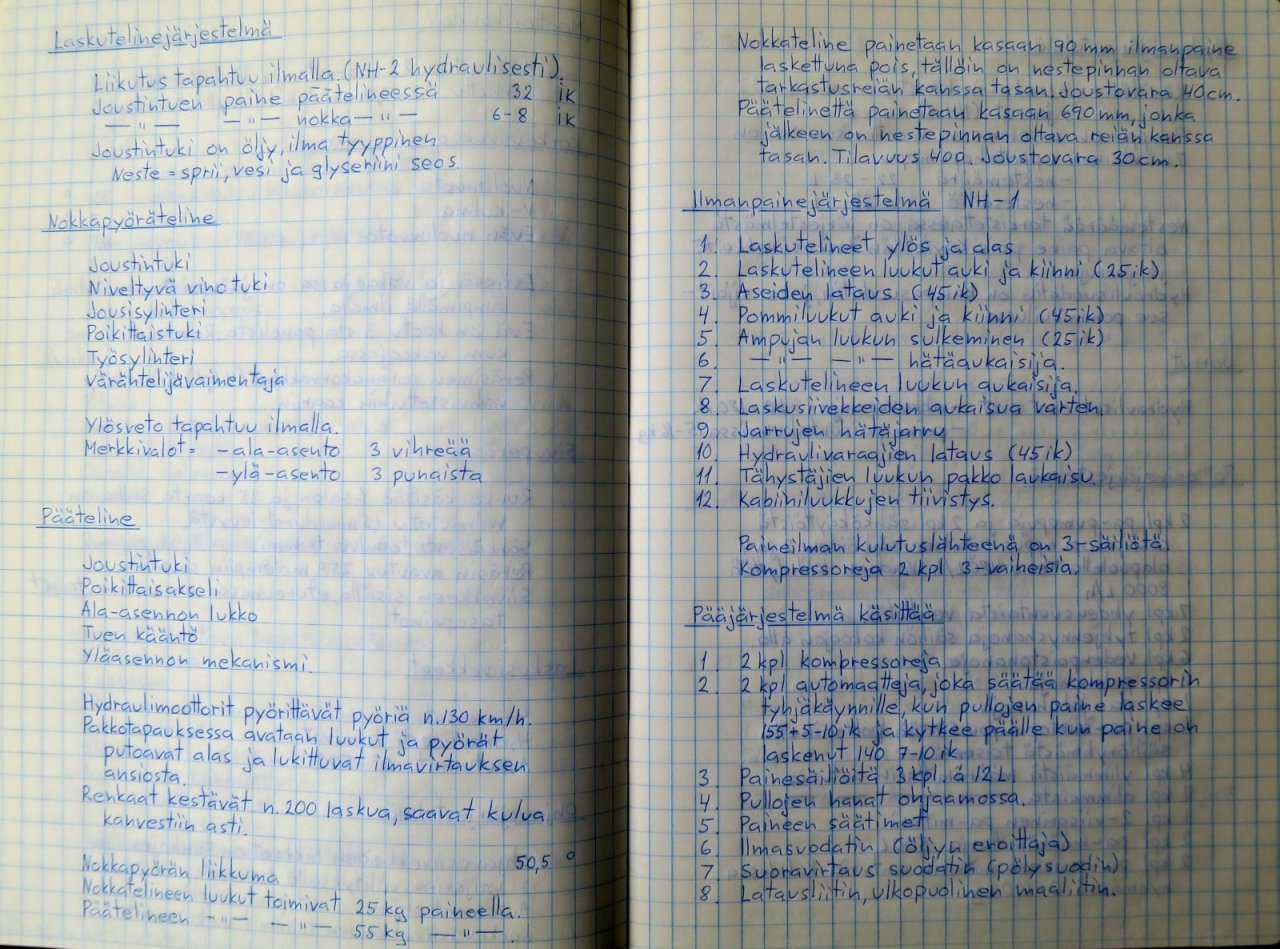 Laskutelinejärjestelmä
Liikutus tapahtuu ilmalla. (NH-2 hydraulisesti).
Joustintuen paine päätelineessä 32 ik
— " — — " — nokka — " — 6-8 ik
Joustintuki on öljy, ilma tyyppinen
Neste = sprii, vesi ja glyseriini seos.
Nokkapyöräteline
Joustintuki
Niveltyvä vinotuki
Jousisylinteri
Poikittaistuki
Työsylinteri
Värähtelijävaimentaja
Ylösveto tapahtuu ilmalla.
Merkkivalot = -ala-asento 3 vihreää
-ylä-asento 3 punaista
Pääteline
Joustintuki
Poikittaisakseli
Ala-asennon lukko
Tuen kääntö
Yläasennon mekanismi.
Hydraulimoottorit pyörittävät pyöriä n.130 km/h.
Pakkotapauksessa avataan luukut ja pyörät
putoavat alas ja lukittuvat ilmavirtauksen
ansiosta.
Renkaat kestävät n. 200 laskua, saavat kulua
kanvestiin asti.
Nokkapyörän liikkuma 50,5 °
Nokkatelineen luukut toimivat 25 kg paineella.
Päätelineen — " — — " — 55 kg — " —.
Nokkateline painetaan kasaan 90 mm ilmanpaine
laskettuna pois, tällöin on nestepinnan oltava
tarkastusreiän kanssa tasan. Joustovara 40cm.
Päätelinettä painetaan kasaan 690 mm, jonka
jälkeen on nestepinnan oltava reiän kanssa
tasan. Tilavuus 400 Joustovara 30cm.
Ilmanpainejärjestelmä NH-1
1. Laskutelineet ylös ja alas
2. Laskutelineen luukut auki ja kiinni (25 ik)
3. Aseiden lataus (45 ik)
4. Pommiluukut auki ja kiinni (45 ik)
5. Ampujan luukun sulkeminen (25 ik)
6. — " — — " — hätäaukaisija.
7. Laskutelineen luukun aukaisija.
8. Laskusiivekkeiden aukaisua varten.
9. Jarrujen hätäjarru
10. Hydraulivaraajien lataus (45 ik)
11. Tähystäjien luukun pakko laukaisu.
12. Kabiiniluukkujen tiivistys.
Paineilman kulutuslähteenä on 3-säiliötä
Kompressoreja 2 kpl 3-vaiheisia.
Pääjärjestelmä käsittää
1. 2 kpl kompressoreja
2. 2 kpl automaatteja, joka säätää kompressorin
tyhjäkäynnille, kun pullojen paine laskee
155+5-10 ik ja kytkee päälle kun paine on
laskenut 140 7-10 ik
3. Painesäiliöitä 3 kpl. á 12 L
4. Pullojen hanat ohjaamossa.
5. Paineen säätimet
6 Ilmasuodatin (öljyn eroittaja)
7 Suoravirtaus suodatin (pölysuodin)
8 Latausliitin, ulkopuolinen maaliitin.